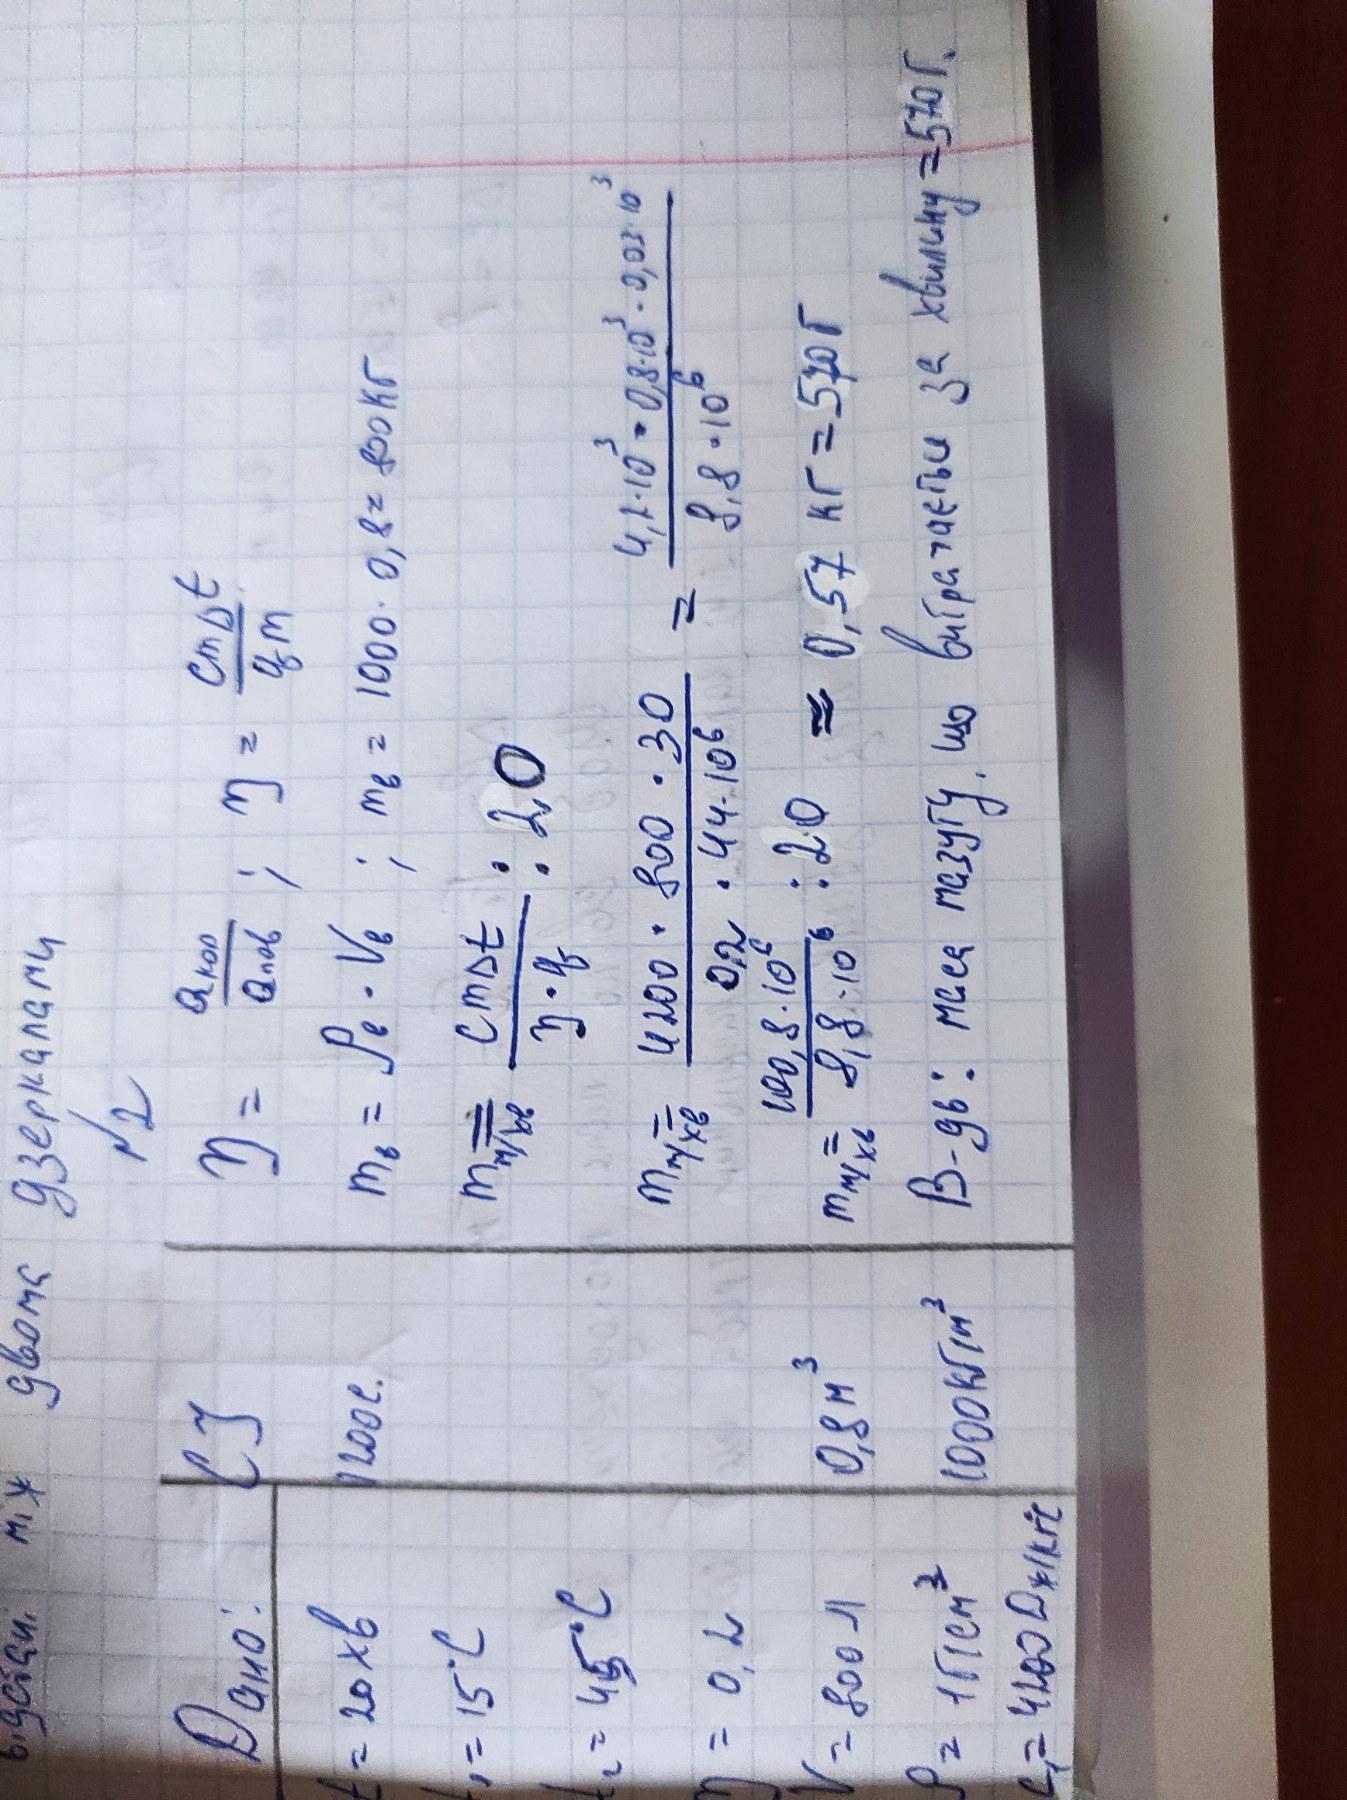 відстані між двома дзеркалами
√2
Дано:
t = 20хв
t₁ = 15°C
t₂ = 45°C
η = 0,2
V = 800 Л
ρ = 1г/см³
c₁ = 4200Дж/кг°C
СЗ
1200с.
0,8м³
1000кг/м³
η = Qкор/Qпов ; η = cmΔt/qm
mв = ρв · Vв ; mв = 1000 · 0,8 = 800кг
mм/хв = cmΔt/η·q : 20
mм/хв = 4200 · 800 · 30/0,2 · 44·10⁶ = 4,2·10³ · 0,8·10³ · 0,03·10³/8,8·10⁶
mм/хв = 100,8·10⁶/8,8·10⁶ : 20 ≈ 0,57 кг = 570г
В-дь: маса мазуту, що витрачаєтьи за хвилину = 570г.